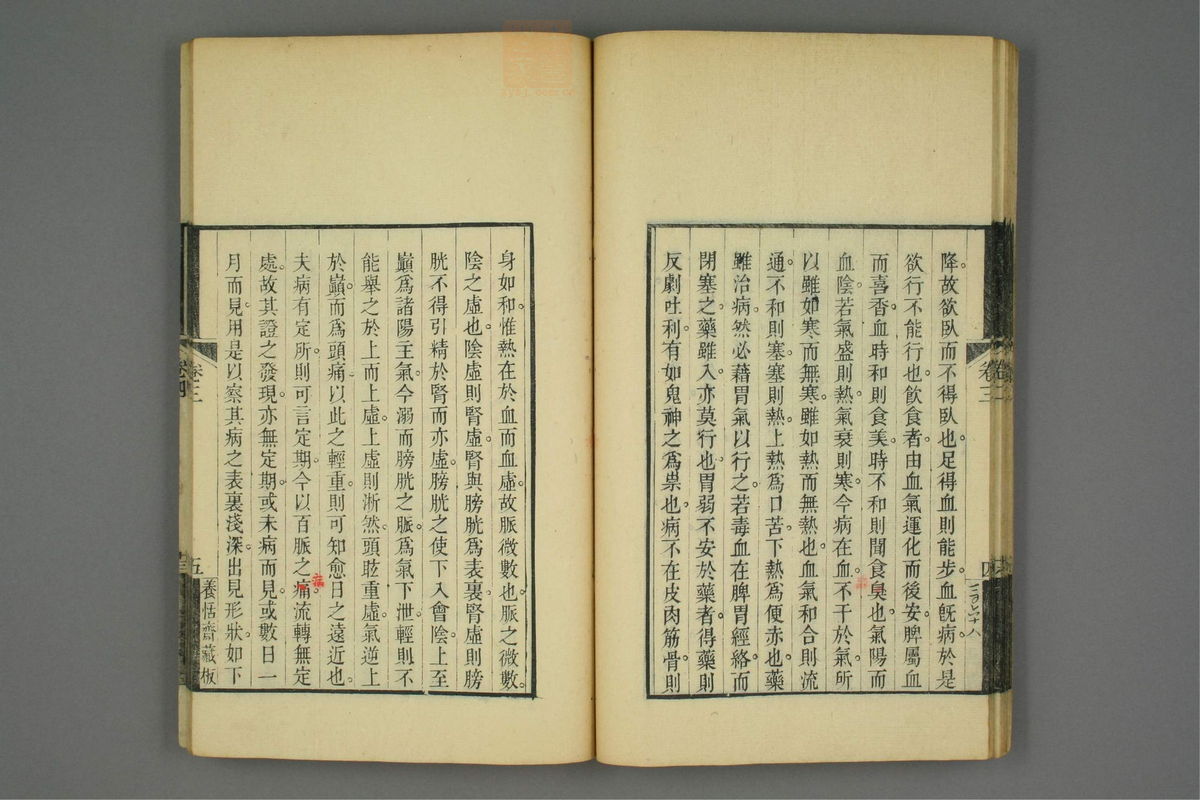 降故欲臥而不得臥也。足得血則能步。血旣病。於是
欲行不能行也。飮食者。由血氣運化而後安。脾屬血
而喜香。血時和則食美。時不和則聞食臭也。氣陽而
血陰。若氣盛則熱。氣衰則寒。今病在血。不干於氣。所
以雖如寒而無寒。雖如熱而無熱也。血氣和合則流
通。不和則塞。塞則熱。上熱爲口苦。下熱爲便赤也。藥
雖治病。然必藉胃氣以行之。若毒血在脾胃經絡。而
閉塞之。藥雖入。亦莫行也。胃弱不安於藥者。得藥則
反劇吐利。有如鬼神之爲祟也。病不在皮肉筋骨。則
身如和。惟熱在於血而血虛。故脈微數也。脈之微數。
陰之虛也。陰虛則腎虛。腎與膀胱爲表裏。腎虛則膀
胱不得引精於腎而亦虛。膀胱之使下入會陰。上至
巓爲諸陽主氣。今溺而膀胱之脈。爲氣下泄。輕則不
能舉之於上而上虛。上虛則淅然頭眩。重虛氣逆上
於巓。而爲頭痛。以此之輕重。則可知愈日之遠近也。
夫病有定所。則可言定期。今以百脈之痛。流轉無定
處。故其證之發現。亦無定期。或未病而見。或數日一
月而見。用是以察其病之表裏淺深。出見形狀。如下
病
卷三
四
卷三
五
養恬齋藏板